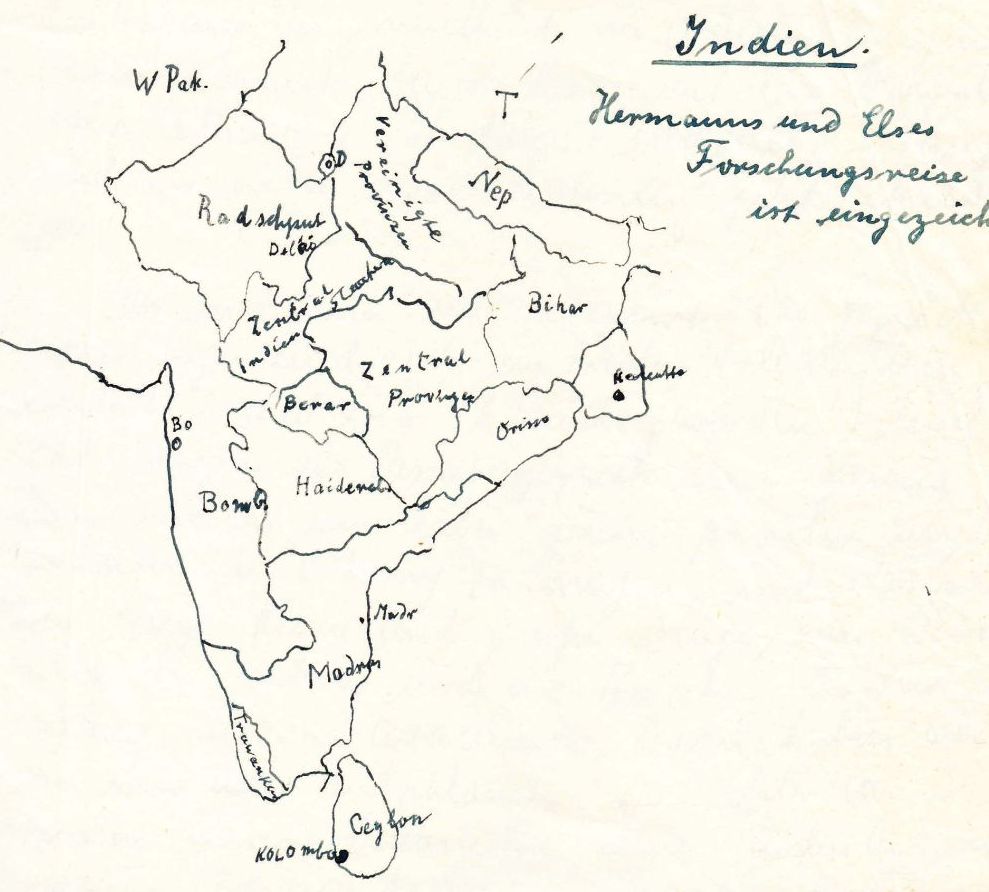 Indien.
W Pak.
T
Hermanns und Elses
Forschungsreise
ist eingezeich
D
Vereinigte
Provinzen
Nep
Radschput
Delhi
Zentral
Indien
Bihar
Zentral
Provinzen
Kalcutta
Berar
Oriss
Bo
Bomb.
Haiderab.
Madr
Madras
Trawanka
Ceylon
KOLOmbo